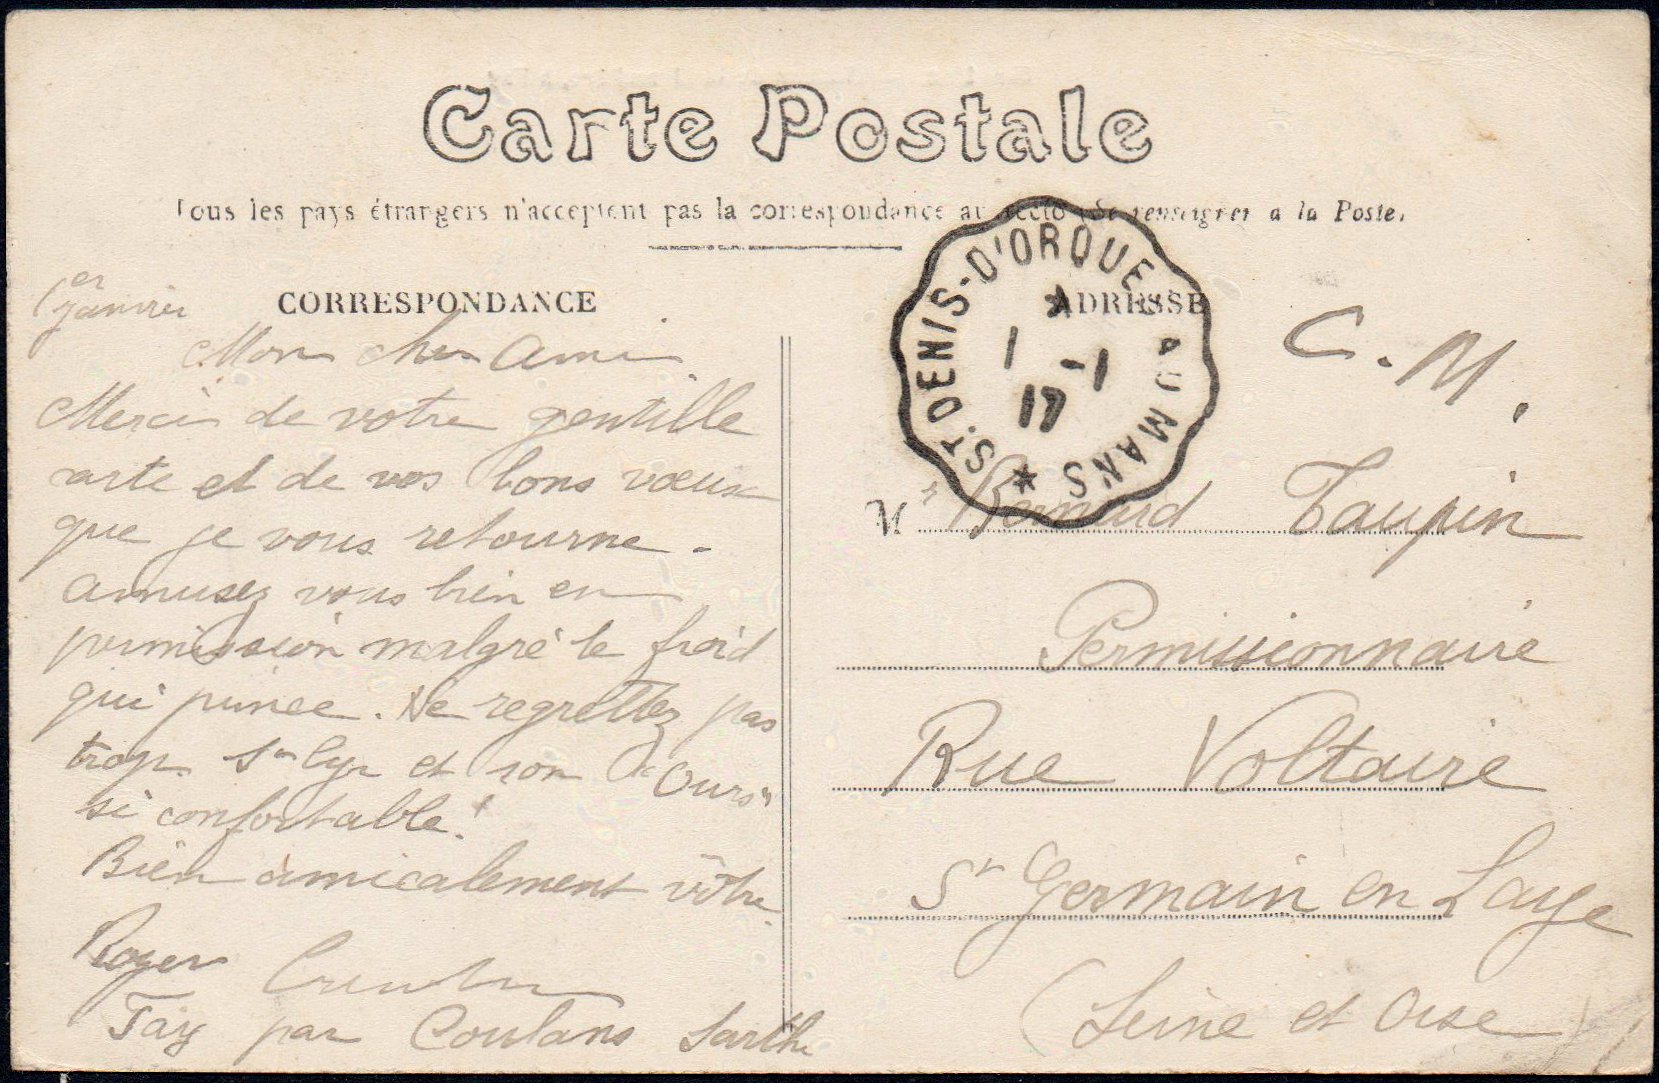 Carte Postale
Tous les pays étrangers n'acceptent pas la correspondance au recto (Se renseigner à la Poste.
CORRESPONDANCE
ADRESSE
ST. DENIS-D'ORQUES AU MANS
1 -1
17
1er
janvier
Mon cher Ami
Merci de votre gentille
carte et de vos bons voeux
que je vous retourne.
Amusez vous bien en
permission malgré le froid
qui pince. Ne regrettez pas
trop St Cyr et son "Ours"
si confortable!
Bien amicalement vôtre
Roger
Fay par Coulans Sarthe
C. M.
Mr Bernard Taupin
Permissionnaire
Rue Voltaire
St Germain en Laye
(Seine et Oise)